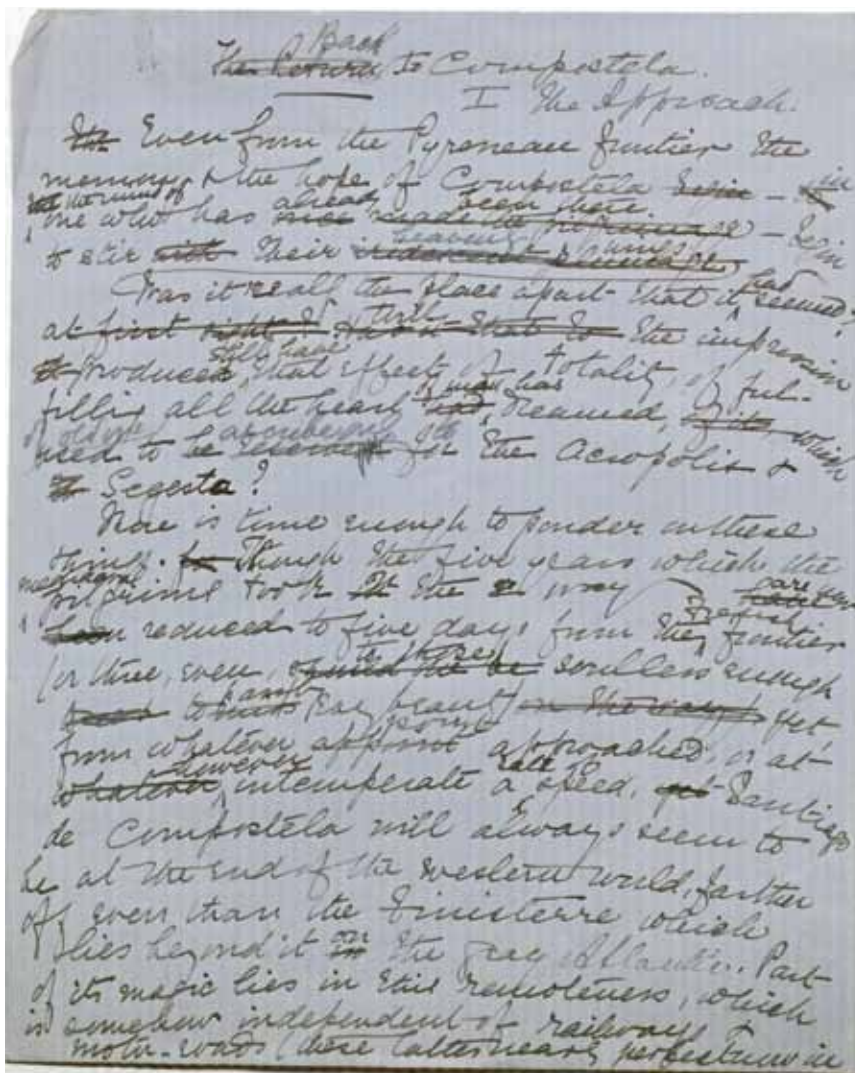 Back
The Return to Compostela.
I The Approach.
Even from the Pyrenean frontier the
memory & the hope of Compostela begin – in
the mind of already been there
one who has made the pilgrimage – begin
to stir with their
Was it really the place apart that it had seemed,
at first sight? that the impression
still have
it produced, that effect of totality, of ful-
filling all the heart of man has dreamed, of its, which
used to be reserved for the Acropolis &
Segesta?
There is time enough to ponder on these
things. Though the five years which the
mediaeval
pilgrims took the way are now
been reduced to five days from the French frontier
(or three, even, to those soulless enough
to all beauty on the way) yet
from whatever point approached, or at
whatever however intemperate a rate of speed, yet Santiago
de Compostela will always seem to
be at the end of the western world, farther
off even than the Finisterre which
lies beyond it on the gray Atlantic. Part
of its magic lies in this remoteness, which
is somehow independent of railways &
motor-roads (these latter nearly perfect now in